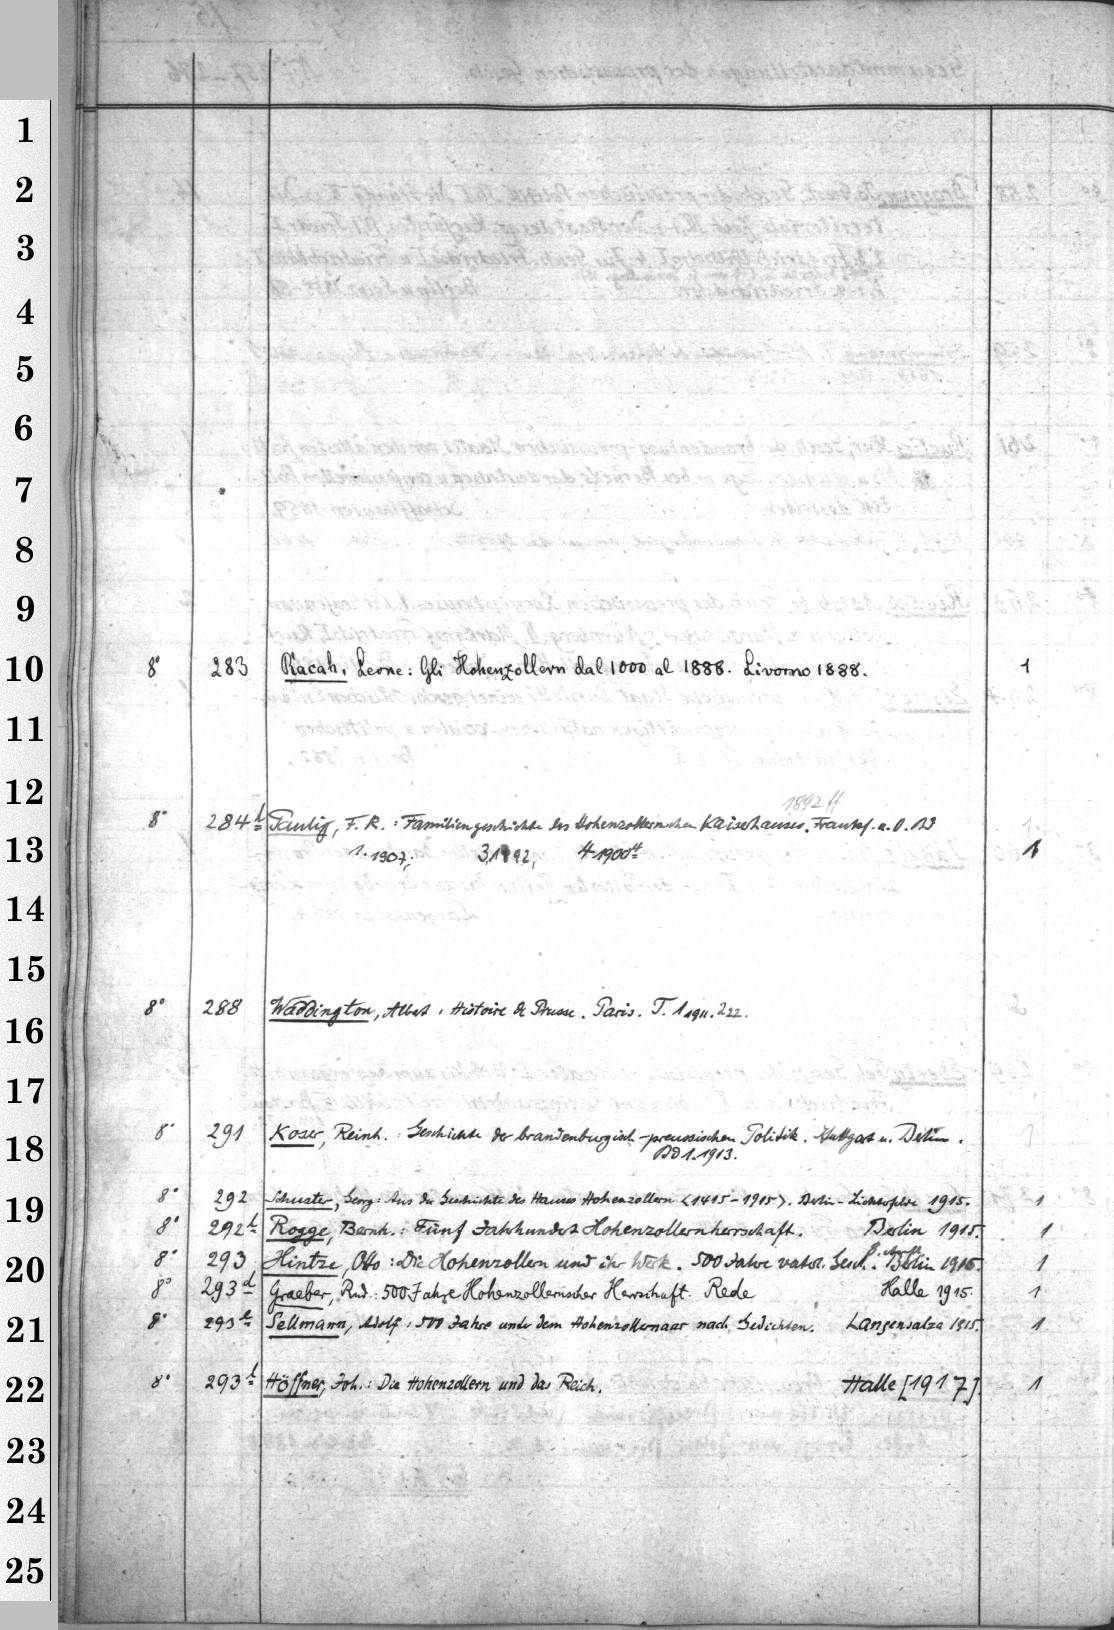 1
2
3
4
5
6
7
8
9
10
11
12
13
14
15
16
17
18
19
20
21
22
23
24
25
8° 283 Racah, Leone: Gli Hohenzollern dal 1000 al 1888. Livorno 1888. 1
1892 ff
8° 284 b Paulig, F. R.: Familiengeschichte des Hohenzollernschen Kaiserhauses. Frankf. a. O. Bd
1. 1907; 3, 1892, 4 1900 1
8° 288 Waddington, Albert: Histoire de Prusse. Paris. T. 1 1911. 2 22.
8° 291 Koser, Reinh.: Geschichte der brandenburgisch-preussischen Politik. Stuttgart u. Berlin.
Bd 1. 1913.
8° 292 Schuster, Georg: Aus der Geschichte des Hauses Hohenzollern <1415-1915>. Berlin-Lichterfelde 1915. 1
8° 292 b Rogge, Bernh.: Fünf Jahrhundert Hohenzollernherrschaft. Berlin 1915. 1
8° 293 Hintze, Otto: Die Hohenzollern und ihr Werk. 500 Jahre vaterl. Gesch. Berlin 1915. 1
8° 293 d Graeber, Rud.: 500 Jahre Hohenzollernscher Herrschaft. Rede Halle 1915. 1
8° 293 e Sellmann, Adolf: 500 Jahre unter dem Hohenzollernaar nach Gedichten. Langensalza 1915. 1
8° 293 f Höffner, Joh.: Die Hohenzollern und das Reich. Halle [1917]. 1